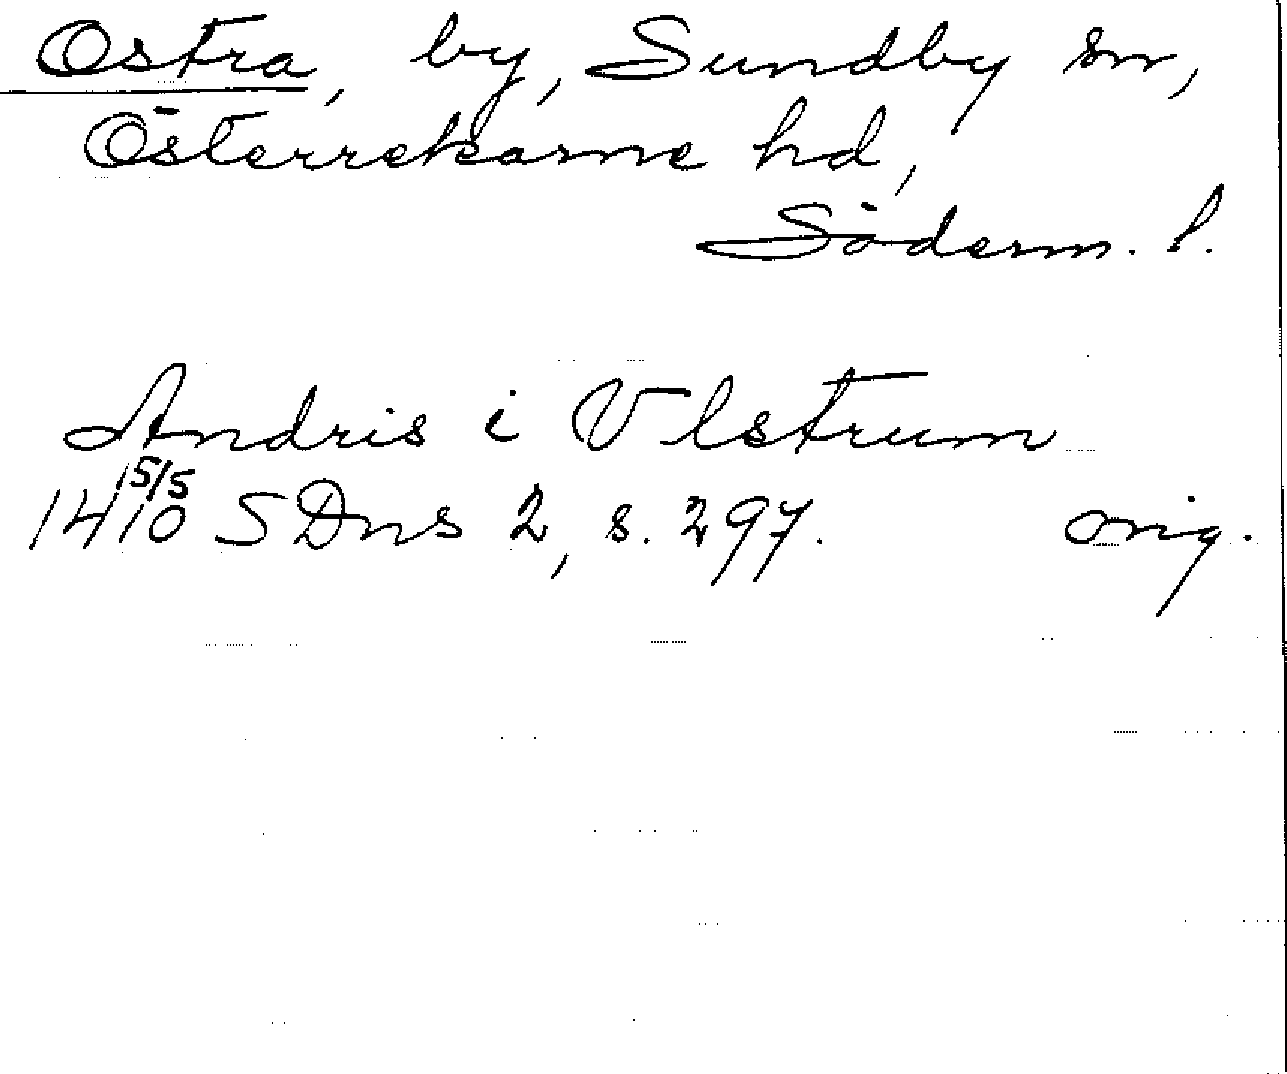 Ostra, by, Sundby sn,
Österrekarne hd,
Söderm. l.
Andris i Vlstrum
14 15/5 10 SDns 2, s. 297. orig.